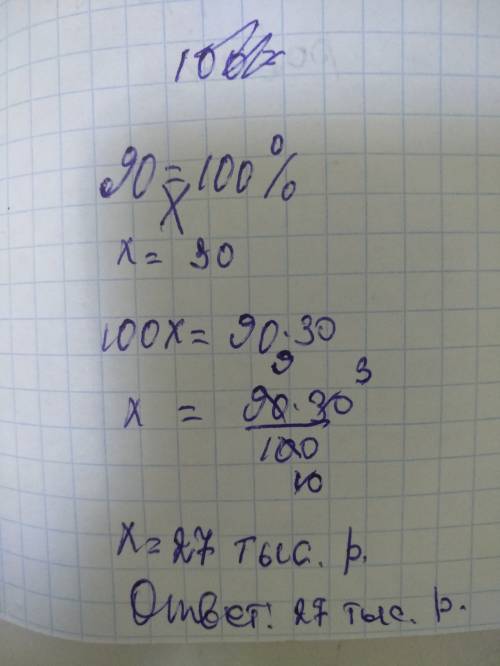 90 = 100 %
X
x = 30
100x = 90 · 30
9 3
x = 90 · 30
100
10
x = 27 тыс. р.
Ответ: 27 тыс. р.